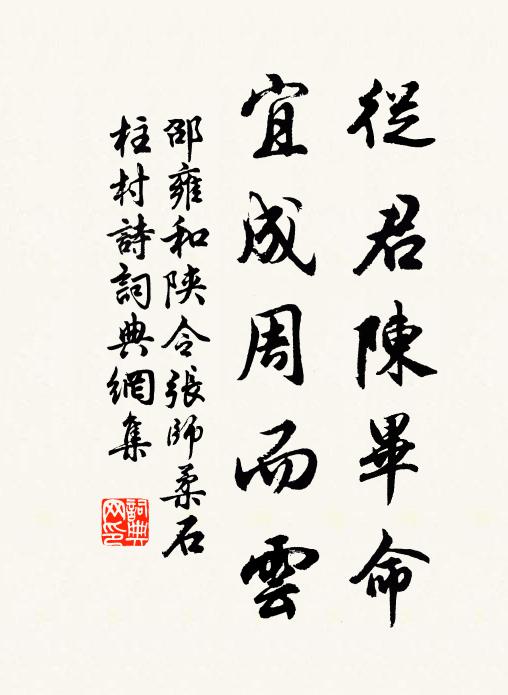 從君陳畢命
宜成周而雲
邵雍和陝令張師柔石
柱村詩詞典網集
詞典网印